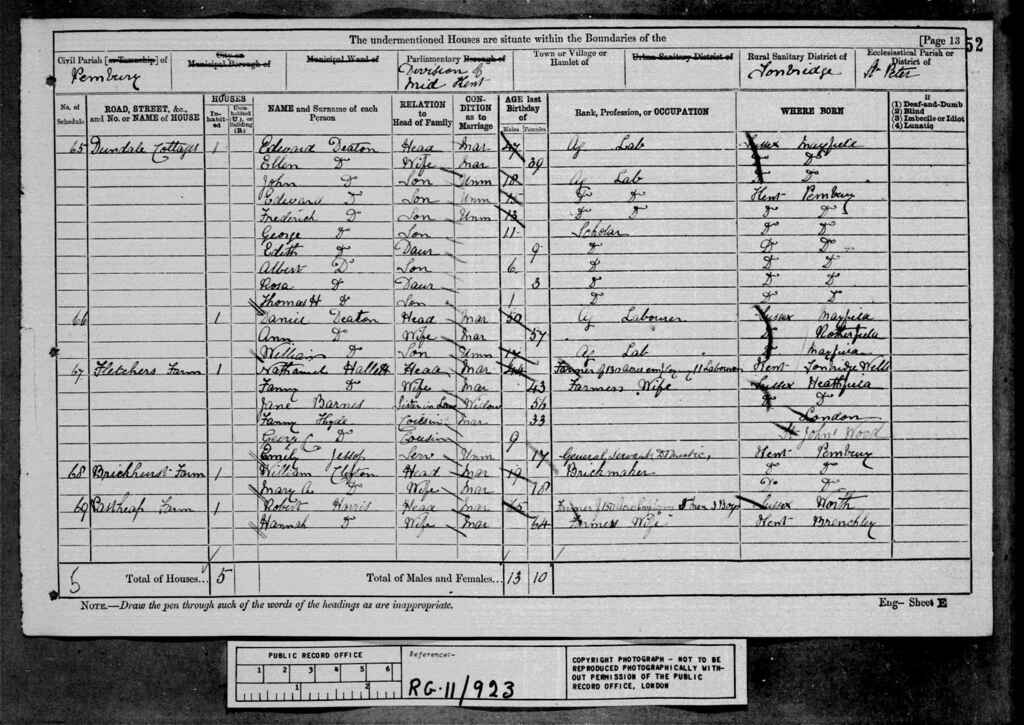 The undermentioned Houses are situate within the Boundaries of the
[Page 13
52
Civil Parish [or Township] of
Pembury
Municipal Borough of
Municipal Ward of
Parliamentary Borough of
Division of
Mid Kent
Town or Village or
Hamlet of
Urban Sanitary District of
Rural Sanitary District of
Tonbridge
Ecclesiastical Parish or
District of
St Peter
No. of
Schedule
ROAD, STREET, &c.,
and No. or NAME of HOUSE
HOUSES
In-
habit-
ed
Unin-
habited
(U), or
Building
(B.)
NAME and Surname of each
Person
RELATION
to
Head of Family
CON-
DITION
as to
Marriage
AGE last
Birthday
of
Males
Females
Rank, Profession, or OCCUPATION
WHERE BORN
If
(1) Deaf-and-Dumb
(2) Blind
(3) Imbecile or Idiot
(4) Lunatic
65 Dundale Cottages 1 Edward Deaton Head Mar 47 Ag Lab Sussex Mayfield
Ellen D Wife Mar 39 D D
John D Son Unm 18 Ag Lab D D
Edward D Son Unm 15 D D Kent Pembury
Frederick D Son Unm 13 D D D D
George D Son 11 Scholar D D
Edith D Daur 9 D D D
Albert D Son 6 D D D
Rosa D Daur 3 D D D
Thomas H D Son 1 D D D
66 1 Daniel Deaton Head Mar 50 Ag Labourer Sussex Mayfield
Ann D Wife Mar 57 Rotherfield
William D Son Unm 17 Ag Lab Mayfield
67 Fletchers Farm 1 Nathaniel Hallett Head Mar 44 Farmer of acres employ 11 Labourers Kent Tonbridge Wells
Fanny D Wife Mar 43 Farmers Wife Sussex Heathfield
Jane Barnes Sister in Law Widow 54 D D
Fanny Hyde Cousin Mar 33 London
George D Cousin 9 St Johns Wood
Emily Jessop Serv Unm 17 General Servant Domestic Kent Pembury
68 Brickhurst Farm 1 William Head Mar 19 Brickmaker D D
Mary A. D Wife Mar 18 Do D
69 Farm 1 Robert Harris Head Mar 65 Farmer of Men 3 Boys Sussex Worth
Hannah D Wife Mar 64 Farmers Wife Kent Brenchley
5 Total of Houses... 5 Total of Males and Females... 13 10
NOTE.—Draw the pen through such of the words of the headings as are inappropriate.
Eng- Sheet E
PUBLIC RECORD OFFICE
1 2 3 4 5 6
1 2
Reference:-
RG·11/923
COPYRIGHT PHOTOGRAPH - NOT TO BE
REPRODUCED PHOTOGRAPHICALLY WITH-
OUT PERMISSION OF THE PUBLIC
RECORD OFFICE, LONDON